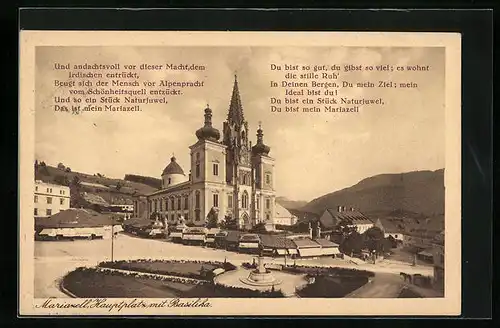 Und andachtsvoll vor dieser Macht, dem
irdischen entrückt,
Beugt sich der Mensch vor Alpenpracht
vom Schönheitsquell entzückt.
Und so ein Stück Naturjuwel,
Das ist mein Mariazell.
Du bist so gut, du gibst so viel; es wohnt
die stille Ruh'
In Deinen Bergen, Du mein Ziel; mein
Ideal bist du!
Du bist ein Stück Naturjuwel,
Du bist mein Mariazell
Mariazell, Hauptplatz mit Basilika.